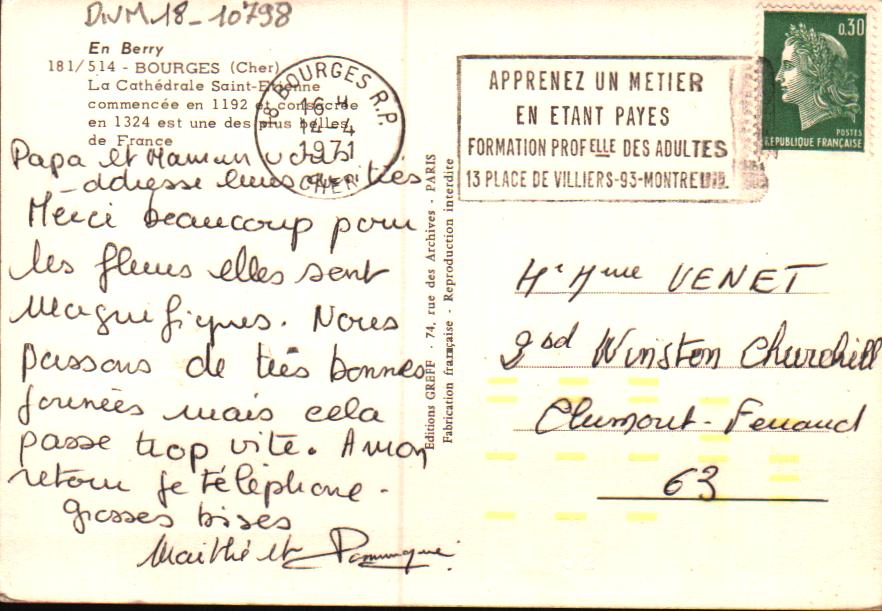 DNM.18-10798
En Berry
181/514 - BOURGES (Cher)
La Cathédrale Saint-Etienne
commencée en 1192 et consacrée
en 1324 est une des plus belles
de France
18 BOURGES R.P.
16 H
14-4
1971
CHER
APPRENEZ UN METIER
EN ETANT PAYES
FORMATION PROFELLE DES ADULTES
13 PLACE DE VILLIERS-93-MONTREUIL
0,30
POSTES
REPUBLIQUE FRANÇAISE
Papa et Maman vous
adresse leurs amitiés
Merci beaucoup pour
les fleurs elles sont
magnifiques. Nous
passons de très bonnes
journées mais cela
passe trop vite. A mon
retour je téléphone.
Grosses bises
Maithé et Dominique
Editions GREFF - 74, rue des Archives - PARIS
Fabrication française - Reproduction interdite
Mr Mme VENET
2 Bd Winston Churchill
Clermont-Ferrand
63